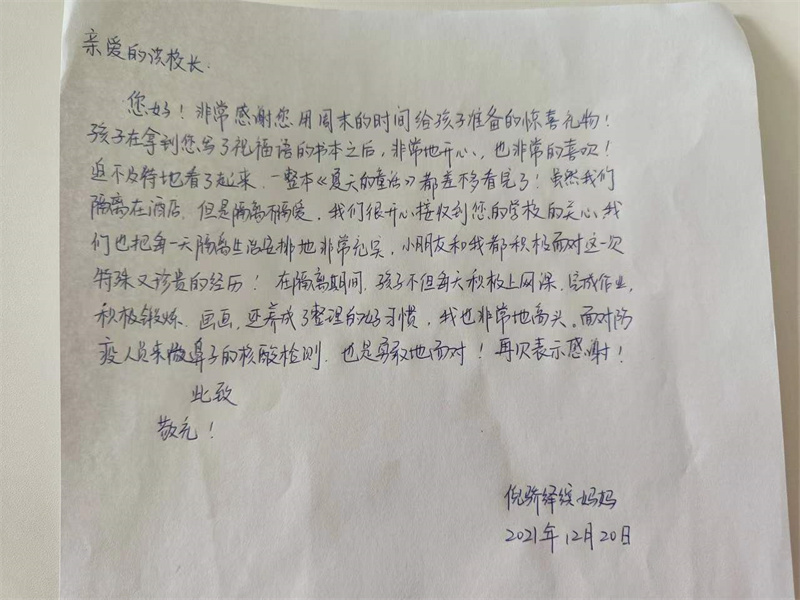 亲爱的洪校长.
您好！非常感谢您用周末的时间给孩子准备的惊喜礼物！
孩子在拿到您写了祝福语的书本之后，非常地开心、也非常的喜欢！
迫不及待地看了起来.一整本《夏天的童话》都差不多看完了！虽然我们
隔离在酒店.但是隔离不隔爱.我们很开心接收到您的学校的关心.我
们也把每一天隔离生活安排地非常充实，小朋友和我都积极面对这一次
特殊又珍贵的经历！在隔离期间.孩子不但每天积极上网课.完成作业，
积极锻炼.画画，还养成了整理的好习惯，我也非常地高兴。面对防
疫人员来做鼻子的核酸检测.也是勇敢地面对！再次表示感谢！
此致
敬礼！
倪骄绎缤妈妈
2021年12月20日